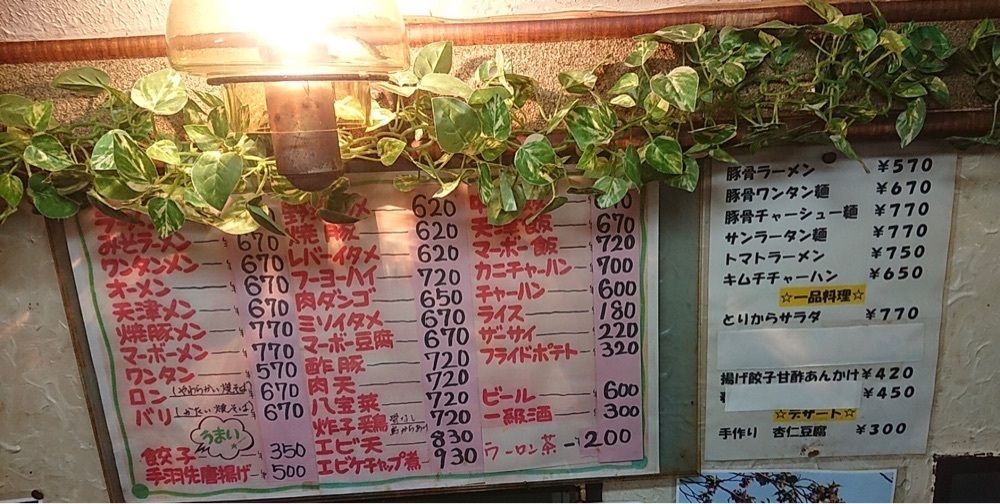 みそラーメン 670
ワンタンメン 670
オーメン 670
天津メン 670
焼豚メン 770
マーボーメン 770
ワンタン 570
ロン (やわらかい焼そば) 670
バリ (かたい焼そば) 670
うまい
餃子 350
手羽先唐揚げ 500
620
焼豚 620
レバーイタメ 620
フーヨーハイ 720
肉ダンゴ 650
ミソイタメ 670
マーボー豆腐 670
酢豚 720
肉天 720
八宝菜 720
炸子鶏 720
エビ天 830
エビケチャップ煮 930
670
マーボー飯 720
カニチャーハン 700
チャーハン 600
ライス 180
ザーサイ 220
フライドポテト 320
ビール 600
一級酒 300
ウーロン茶 200
豚骨ラーメン ¥570
豚骨ワンタン麺 ¥670
豚骨チャーシュー麺 ¥770
サンラータン麺 ¥770
トマトラーメン ¥750
キムチチャーハン ¥650
☆一品料理☆
とりからサラダ ¥770
揚げ餃子甘酢あんかけ ¥420
¥450
☆デザート☆
手作り 杏仁豆腐 ¥300